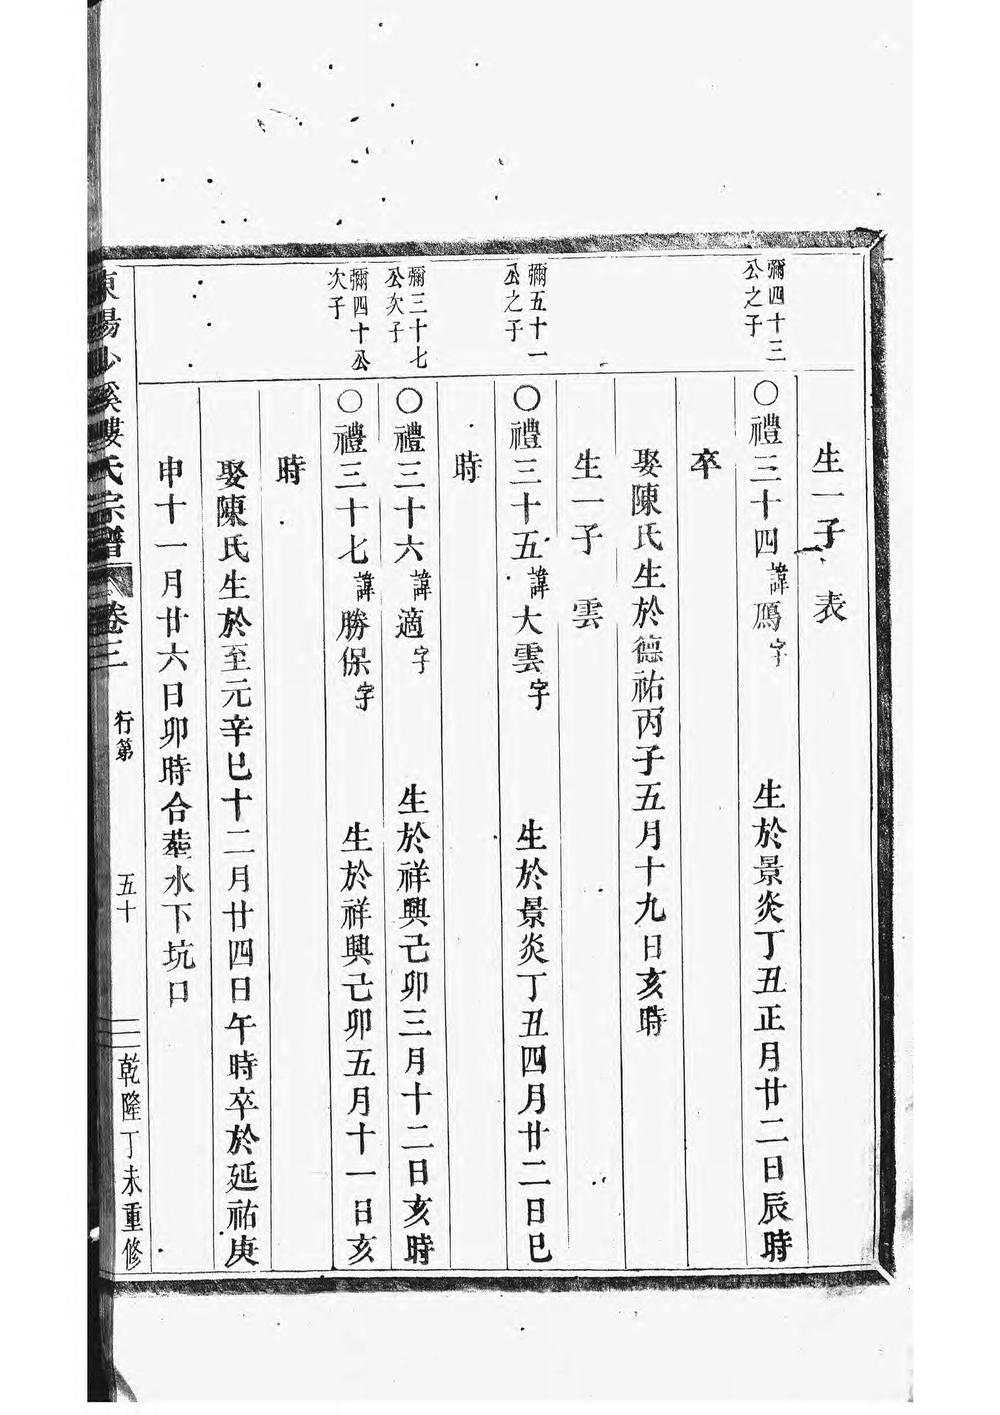 生一子 表
彌四十三
公之子
○禮三十四諱鴈字 生於景炎丁丑正月廿二日辰時
卒
娶陳氏生於德祐丙子五月十九日亥時
生一子 雲
彌五十一
公之子
○禮三十五諱大雲字 生於景炎丁丑四月廿二日巳
時
彌三十七
公次子
○禮三十六諱適字 生於祥興己卯三月十二日亥時
彌四十公
次子
○禮三十七諱勝保字 生於祥興己卯五月十一日亥
時
娶陳氏生於至元辛巳十二月廿四日午時卒於延祐庚
申十一月廿六日卯時合葬水下坑口
東陽沙溪婁氏宗譜 卷三 行第 五十 乾隆丁未重修